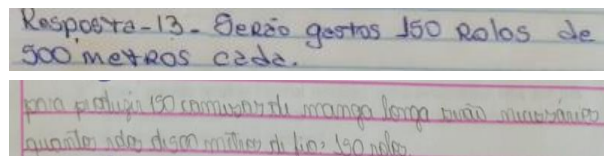 Resposta-13- Serão gastos 150 Rolos de
500 metros cada.
para produzir 150 camisas de manga longa serão necessários
quantos rolos de 500 metros de fio? 150 rolos